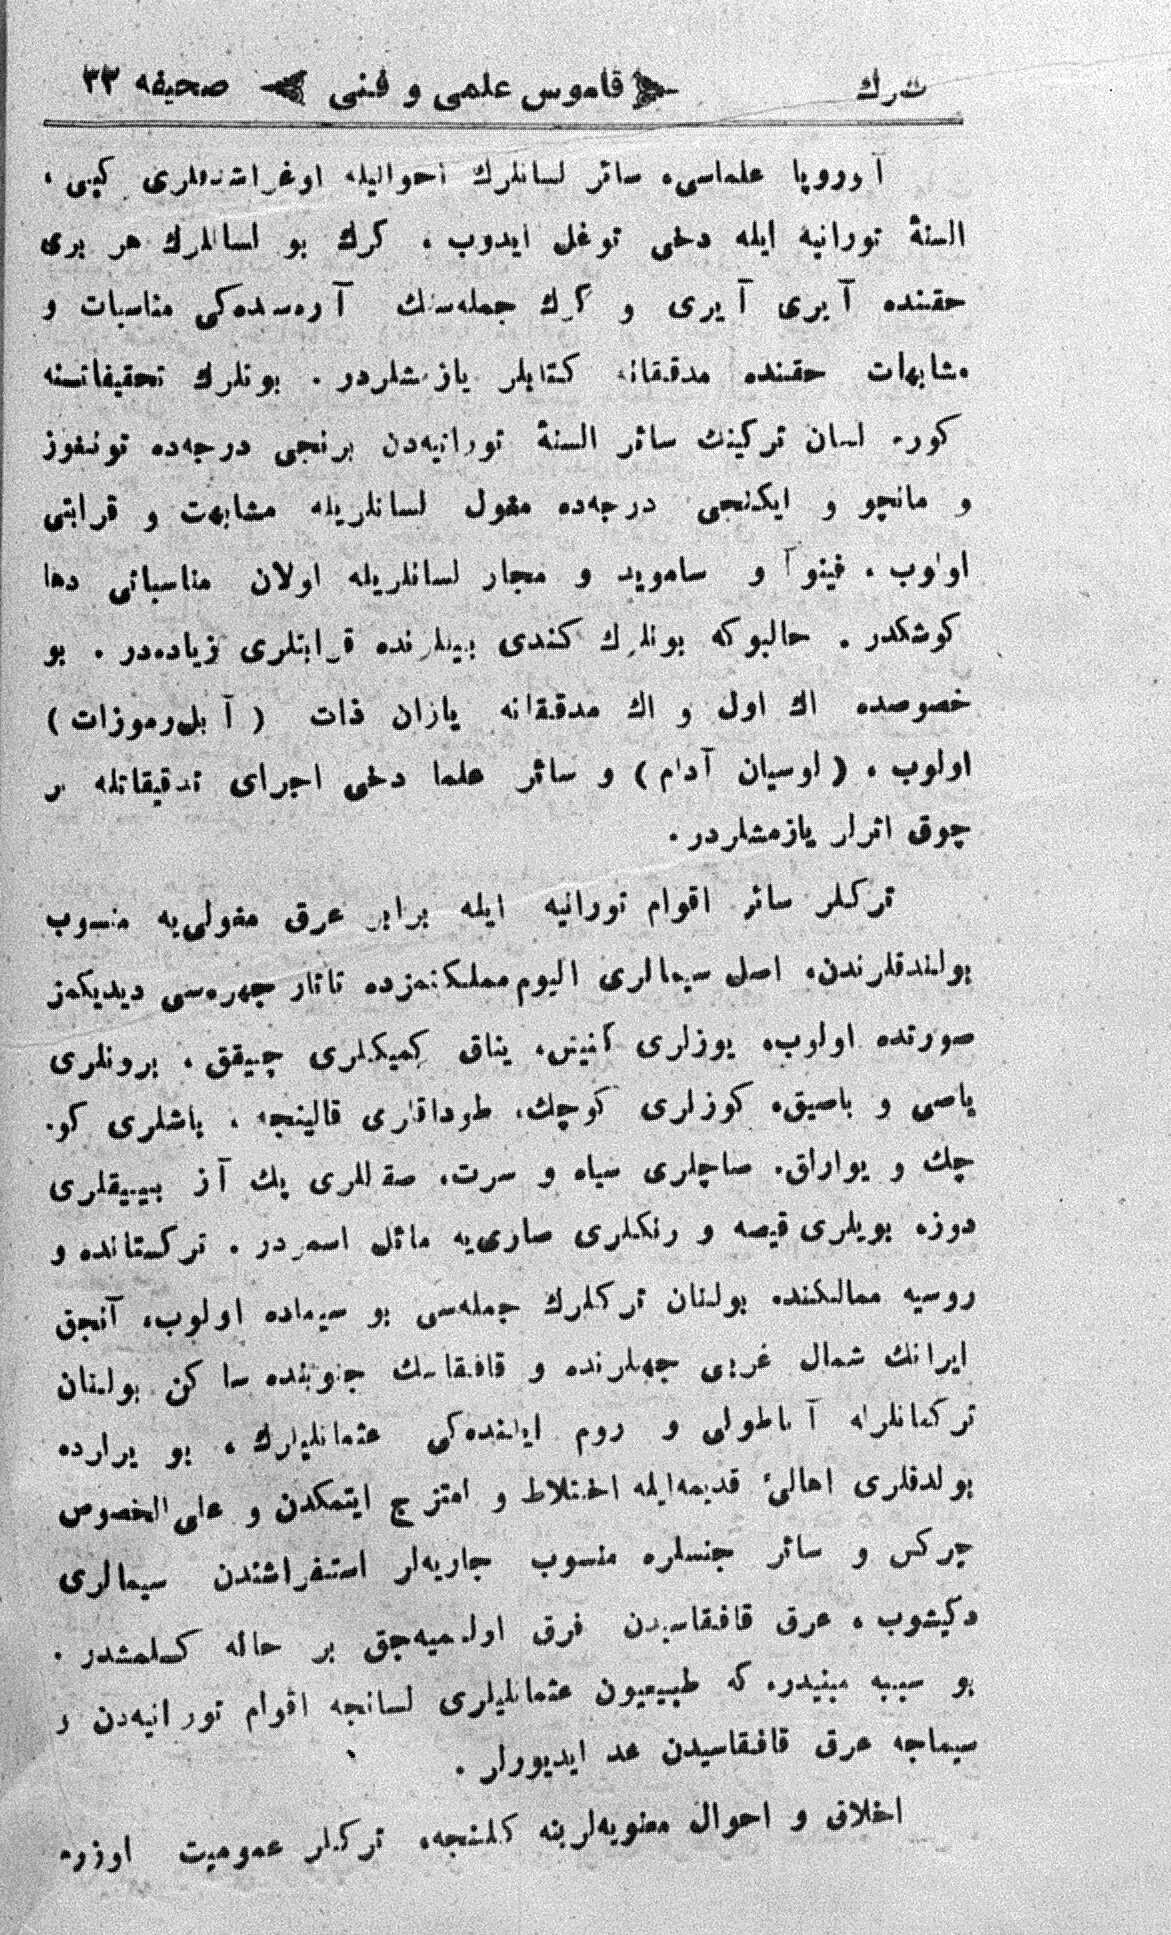 ترك قاموس علمی و فنی صحیفه ٣٣
آوروپا علماسی، سائر لسانلرك احوالیله اوغراشدقلری كبی،
السنهٔ تورانیه ایله دخی توغل ایدوب، كرك بو لسانلرك هر بری
حقنده آیری آیری و كرك جمله‌سنك آره‌سنده‌كی مناسبات و
مشابهات حقنده مدققانه كتابلر یازمشلردر. بونلرك تحقیقاتنه
كوره لسان تركینك سائر السنهٔ تورانیه‌دن برنجی درجه‌ده تونغوز
و مانچو و ایكنجی درجه‌ده مغول لسانلریله مشابهت و قرابتی
اولوب، فینوآ و سامویید و مجار لسانلریله اولان مناسباتی دها
كوشكدر. حالبوكه بونلرك كندی بینلرنده قرابتلری زیاده‌در. بو
خصوصده اك اول و اك مدققانه یازان ذات (آبل‌رموزات)
اولوب، (لوسیان آدام) و سائر علما دخی اجرای تدقیقاتله بر
چوق اثرلر یازمشلردر.
تركلر سائر اقوام تورانیه ایله برابر عرق مغولی‌یه منسوب
بولندقلرندن، اصل سیمالری الیوم مملكتمزده تاتار چهره‌سی دیدیكمز
صورتده اولوب، یوزلری كنیش، یناق كمیكلری چیقق، برونلری
یاصی و باصیق، كوزلری كوچك، طوداقلری قالینجه، باشلری كو.
چك و یوارلاق، صاچلری سیاه و سرت، صقاللری پك آز بییقلری
دوزه بویلری قیصه و رنكلری صاری‌یه مائل اسمردر. تركستانده و
روسیه ممالكنده بولنان تركلرك جمله‌سی بو سیماده اولوب، آنجق
ایرانك شمال غربی جهتلرنده و قافقاسك جنوبنده ساكن بولنان
تركمانلرله آناطولی و روم ایلنده‌كی عثمانلیلرك، بو یرلرده
بولدقلری اهالئ قدیمه‌ایله اختلاط و امتزاج ایتمكدن و علی‌الخصوص
چركس و سائر جنسلره منسوب جاریه‌لر استفراشندن سیمالری
دكیشوب، عرق قافقاسیدن فرق اولنمیه‌جق بر حاله كلمشدر.
بو سببه مبنیدركه طبیعیون عثمانلیلری لسانجه اقوام تورانیه‌دن و
سیماجه عرق قافقاسیدن عد ایدیورلر.
اخلاق و احوال معنویه‌لرینه كلنجه، تركلر عمومیت اوزره